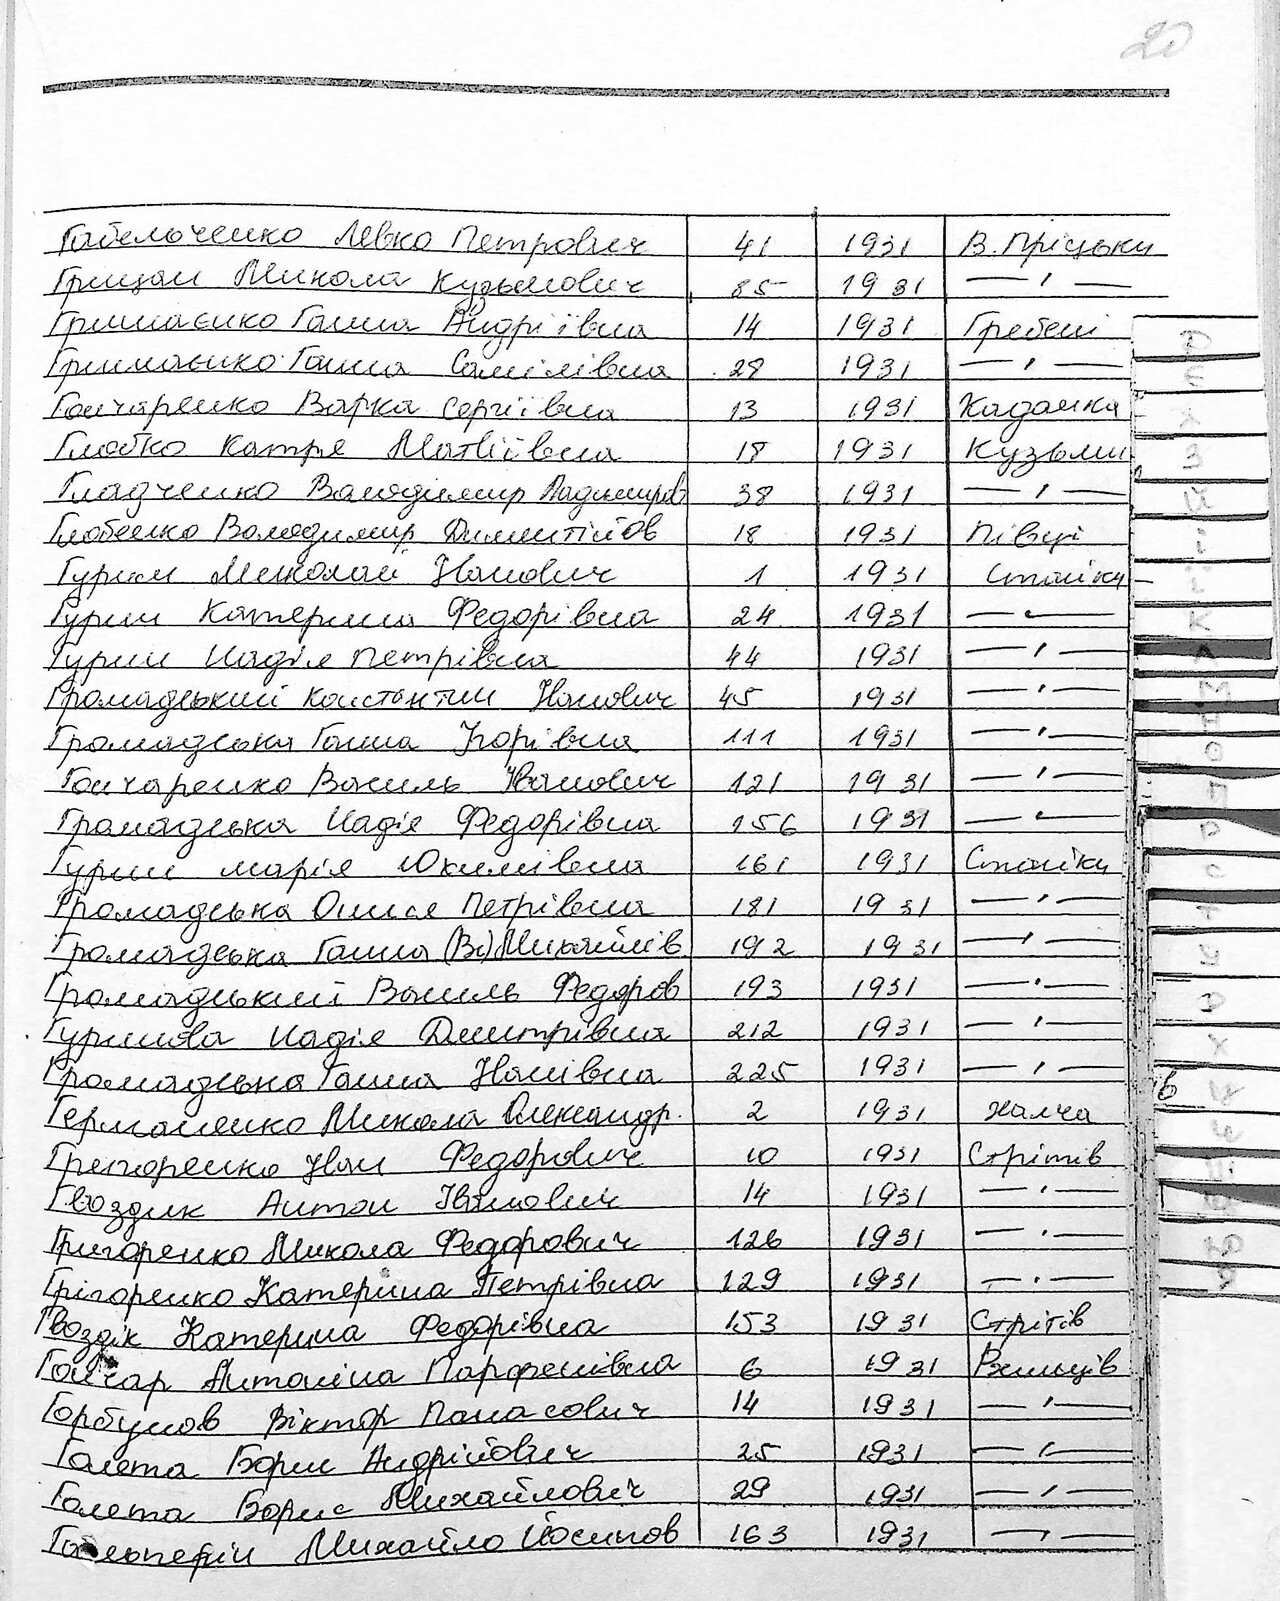 20
Габельченко Левко Петрович 41 1931 В. Пріцьки
Грицан Микола Кузьмович 85 1931 — " —
Гримаєнко Ганна Андріївна 14 1931 Гребені
Гримаєнко Ганна Самілівна 28 1931 — " —
Гончаренко Варка Сергіївна 13 1931 Кадомка
Глобко Катря Матвіївна 18 1931 Кузьми
Гладченко Володимир 38 1931 — " —
Глобенко Володимир 18 1931 Півці
Гурин Миколай Іванович 1 1931 Стайки
Гурин Катерина Федорівна 24 1931 — " —
Гурин Надія Петрівна 44 1931 — " —
Громадський Константин Іванович 45 1931 — " —
Громадська Ганна Ігорівна 111 1931 — " —
Гончаренко Василь Іванович 121 1931 — " —
Громадська Надія Федорівна 156 1931 — " —
Гурин Марія Юхимівна 161 1931 Стайки
Громадська Олися Петрівна 181 1931 — " —
Громадська Ганна (Ві) Михайлів 192 1931 — " —
Громадський Василь Федоров 193 1931 — " —
Гуринова Надія Дмитрівна 212 1931 — " —
Громадська Ганна Іванівна 225 1931 — " —
Германенко Микола Олександр. 2 1931 Халча
Григоренко Іван Федорович 10 1931 Стрітів
Гвоздик Антон Іванович 14 1931 — " —
Григоренко Микола Федорович 126 1931 — " —
Грігоренко Катерина Петрівна 129 1931 — " —
Гвоздік Катерина Федорівна 153 1931 Стрітів
Гончар Антоніна Парфенівна 6 1931
Горбунов Віктор Панасович 14 1931 — " —
Галета Борис Андрійович 25 1931 — " —
Галета Борис Михайлович 29 1931 — " —
Гальперін Михайло Йосипов 163 1931 — " —